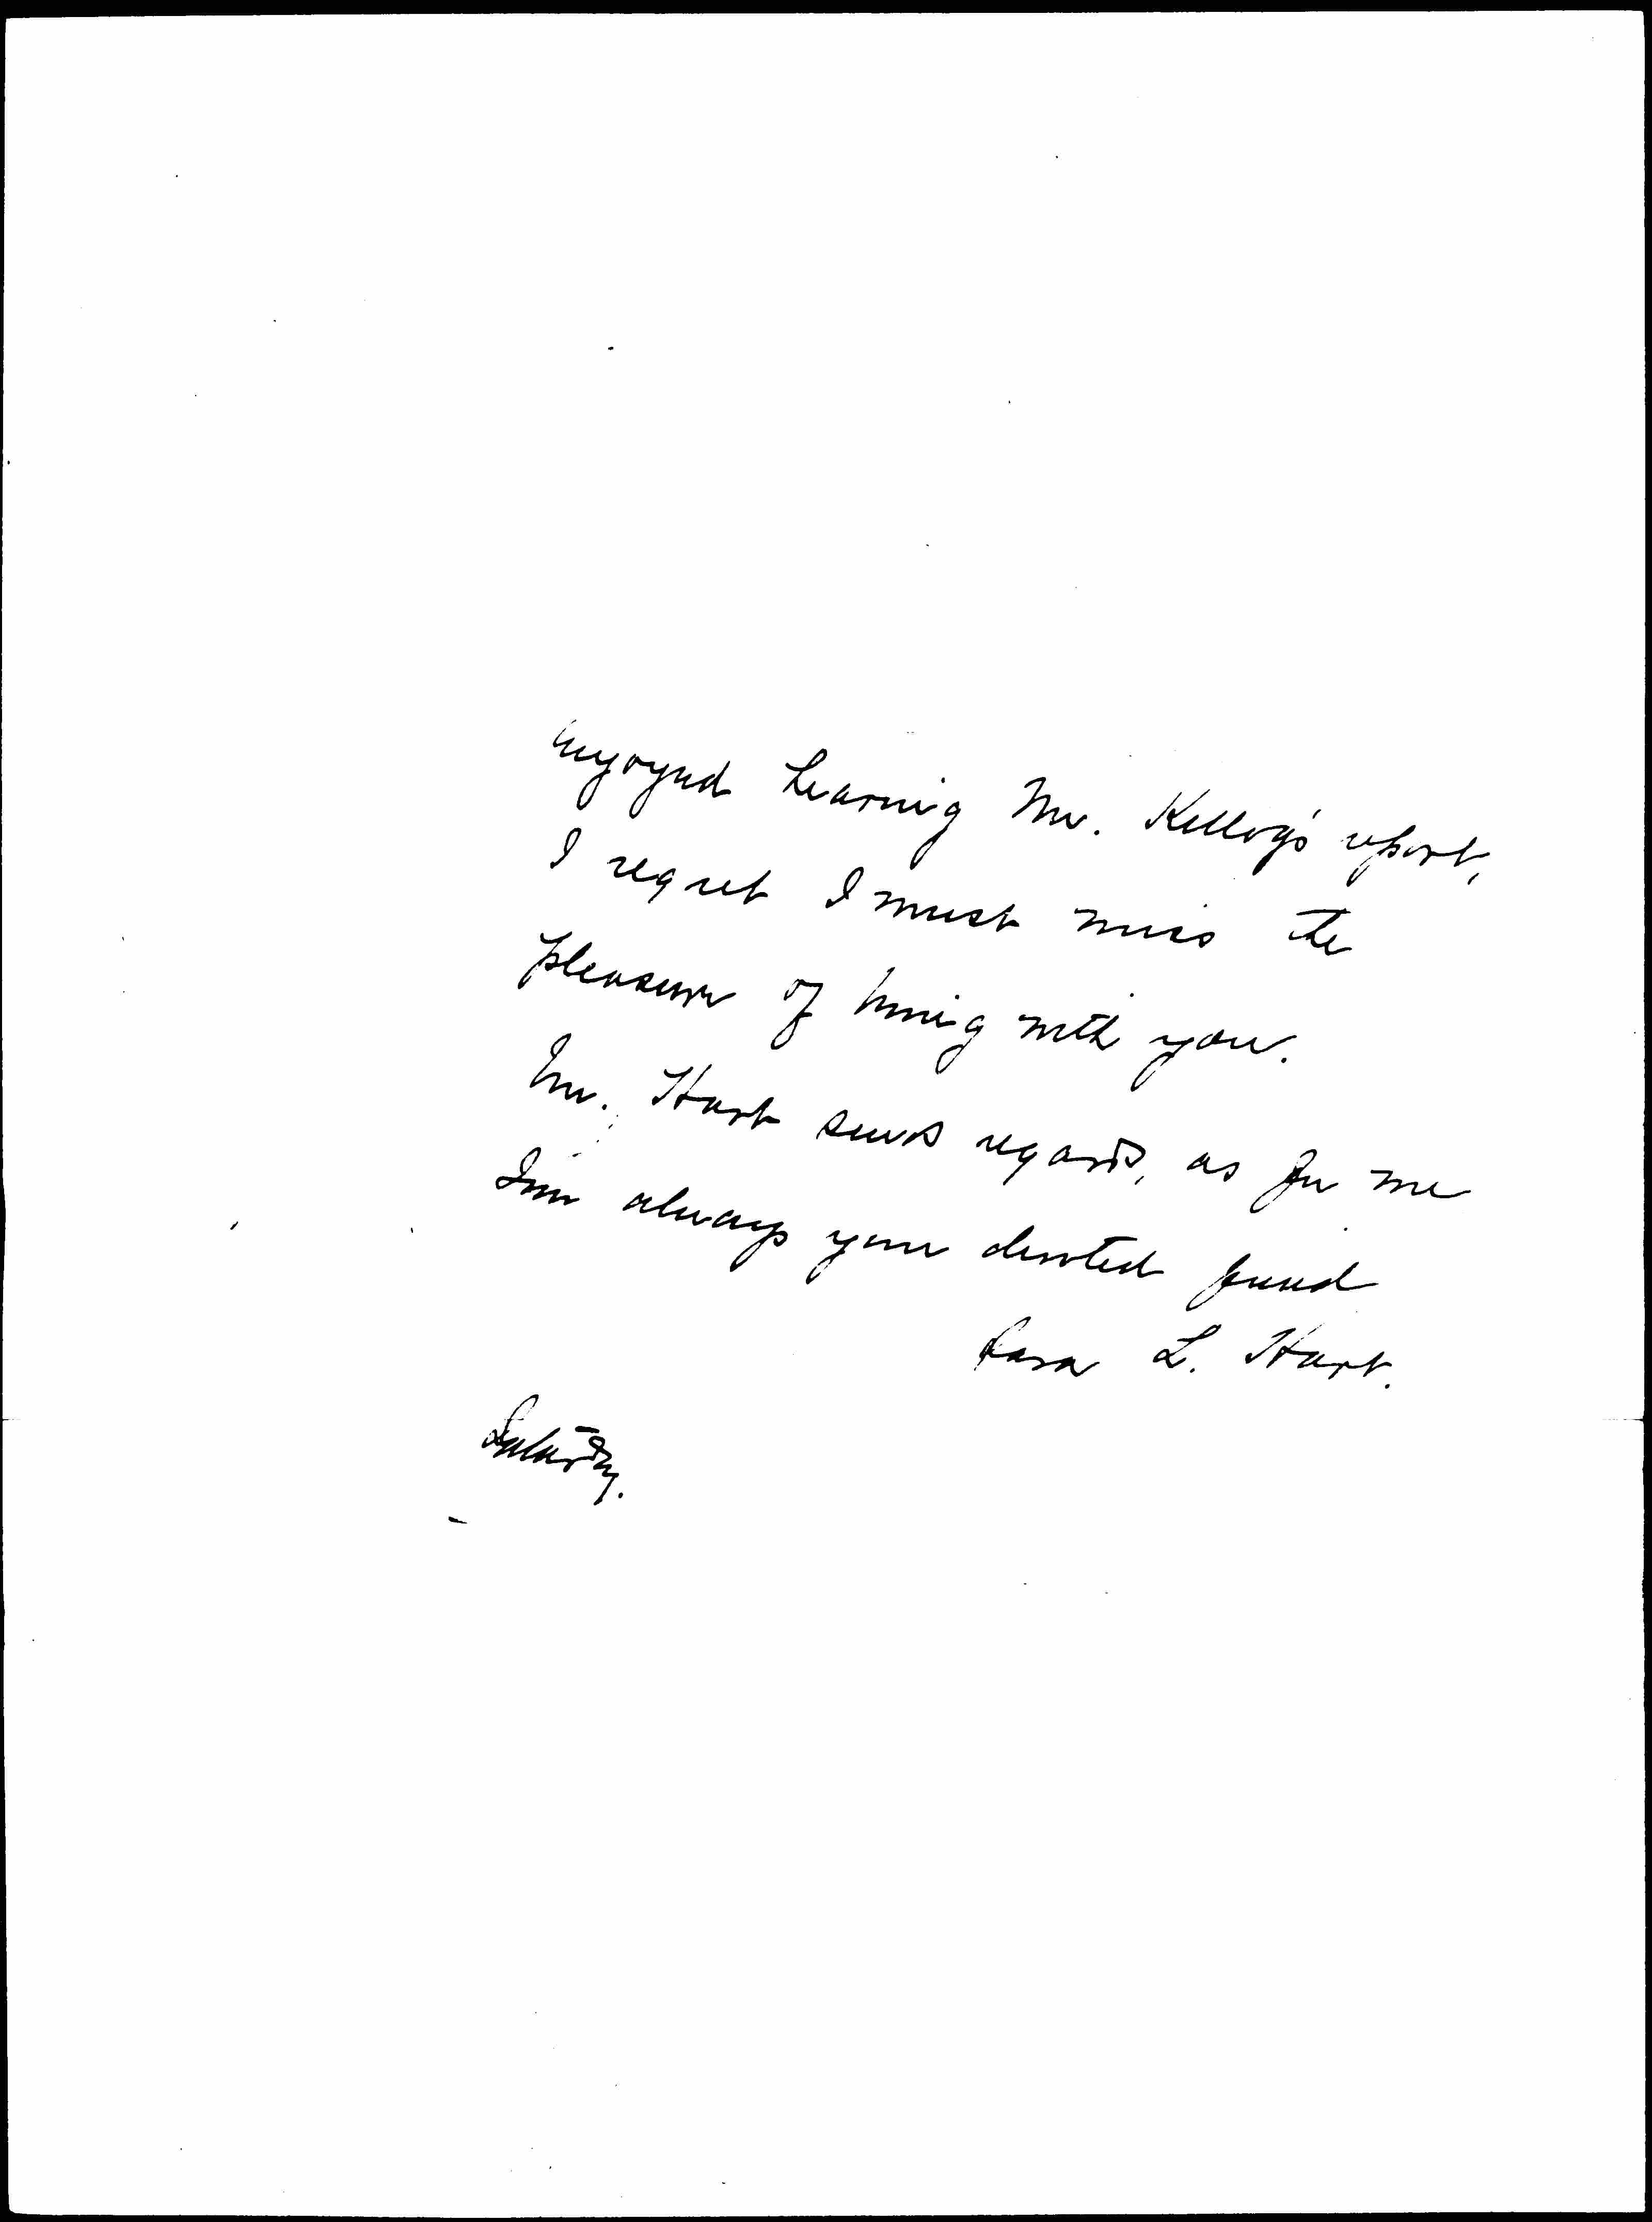 enjoyed hearing Mr. Kellog's report,
I regret I must miss the
pleasure of being with you.
Mr. Hart sends regards, as for me
I'm always your devoted friend
Sara L. Hart.
Saturday.